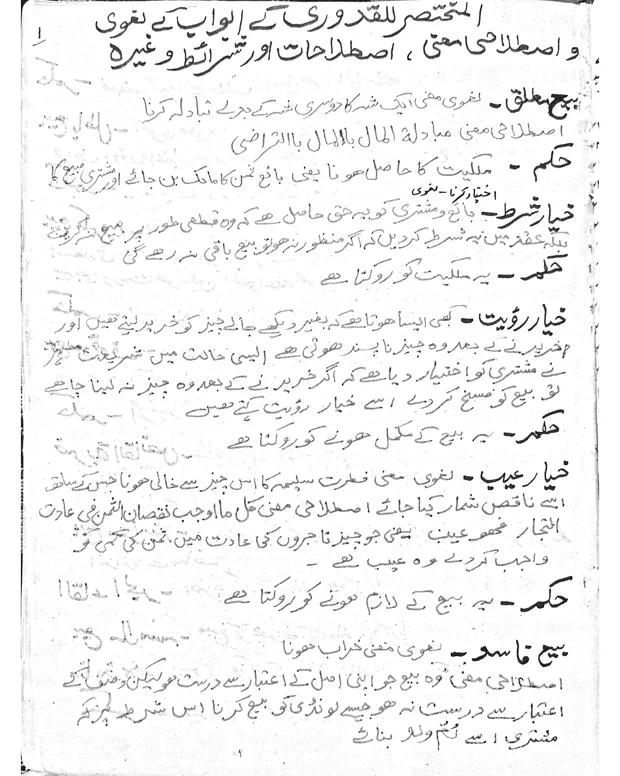 المختصر للقدوری کے ابواب کے لغوی
و اصطلاحی معنی ، اصطلاحات اور شرائط وغیرہ
۱
بیع مطلق - لغوی معنی ایک شہ کا دوسری شہ کے بدلے تبادلہ کرنا
اصطلاحی معنی مبادلۃ المال بالمال بالتراضی
حکم - ملکیت کا حاصل ھونا یعنی بائع ثمن کا مالک بن جائے اور مشتری مبیع کا
اختیار کرنا - لغوی
خیار شرط - بائع و مشتری کو یہ حق حاصل ھے کہ وہ قطعی طور پر بیع نہ کریں
بلکہ عقد میں یہ شرط کردیں کہ اگر منظور نہ ھو تو بیع باقی نہ رھے گی
حکم - یہ ملکیت کو روکتا ھے
خیار رؤیت - کبھی ایسا ھوتا ھے کہ بغیر دیکھے بھالے چیز کو خرید لیتے ھیں اور
خریدنے کے بعد وہ چیز نا پسند ھوتی ھے ایسی حالت میں شریعت
نے مشتری کو اختیار دیا ھے کہ اگر خریدنے کے بعد وہ چیز نہ لینا چاھے
تو بیع کو فسخ کردے اسے خیار رؤیت کہتے ھیں
حکم - یہ بیع کے مکمل ھونے کو روکتا ھے
خیار عیب - لغوی معنی فطرت سلیمہ کا اس چیز سے خالی ھونا جس کے ساتھ
اسے ناقص شمار کیا جائے اصطلاحی معنی کل ما اوجب نقصان الثمن فی عادت
التجار فھو عیب یعنی جو چیز تاجروں کی عادت میں ثمن کی کمی کو
واجب کردے وہ عیب ھے -
حکم - یہ بیع کے لازم ھونے کو روکتا ھے
بیع فاسد - لغوی معنی خراب ھونا
اصطلاحی معنی وہ بیع جو اپنی اصل کے اعتبار سے درست ھو لیکن وصف کے
اعتبار سے درست نہ ھو جیسے لونڈی کو بیع کرنا اس شرط پر کہ
مشتری اسے اُم ولد بنائے